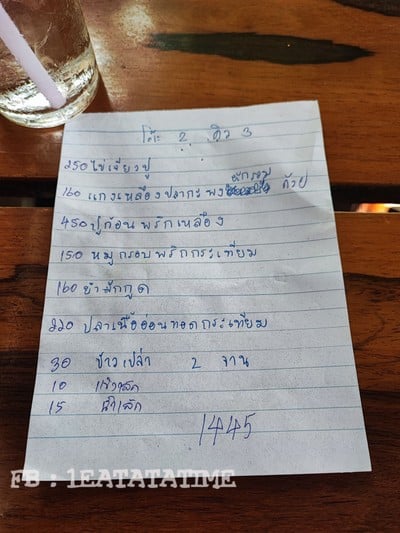 โต๊ะ 2 คิว 3
250 ไข่เจียวปู
160 แกงเหลืองปลากะพง ถ้วย
450 ปูก้อนพริกเหลือง
150 หมูกรอบพริกกระเทียม
160 ยำผักกูด
220 ปลาเนื้ออ่อนทอดกระเทียม
30 ข้าวเปล่า 2 จาน
10
15
1445
FB : 1EATATATIME